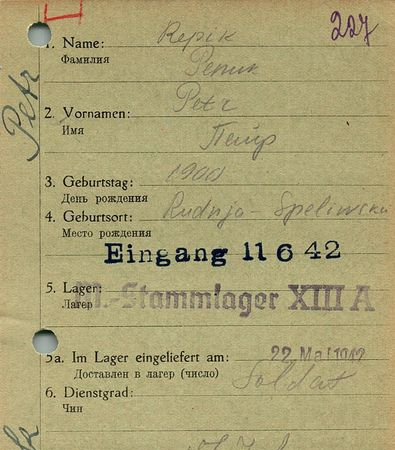 227
1. Name: Repik
Фамилия Репик
Petr
2. Vornamen: Petr
Имя Петр
3. Geburtstag: 1900
День рождения
4. Geburtsort: Rudnja-
Место рождения
Eingang 11 6 42
5. Lager: -Stammlager XIII A
Лагер
5a. Im Lager eingeliefert am: 22. Mai 1942
Доставлен в лагер (число)
6. Dienstgrad: Soldat
Чин